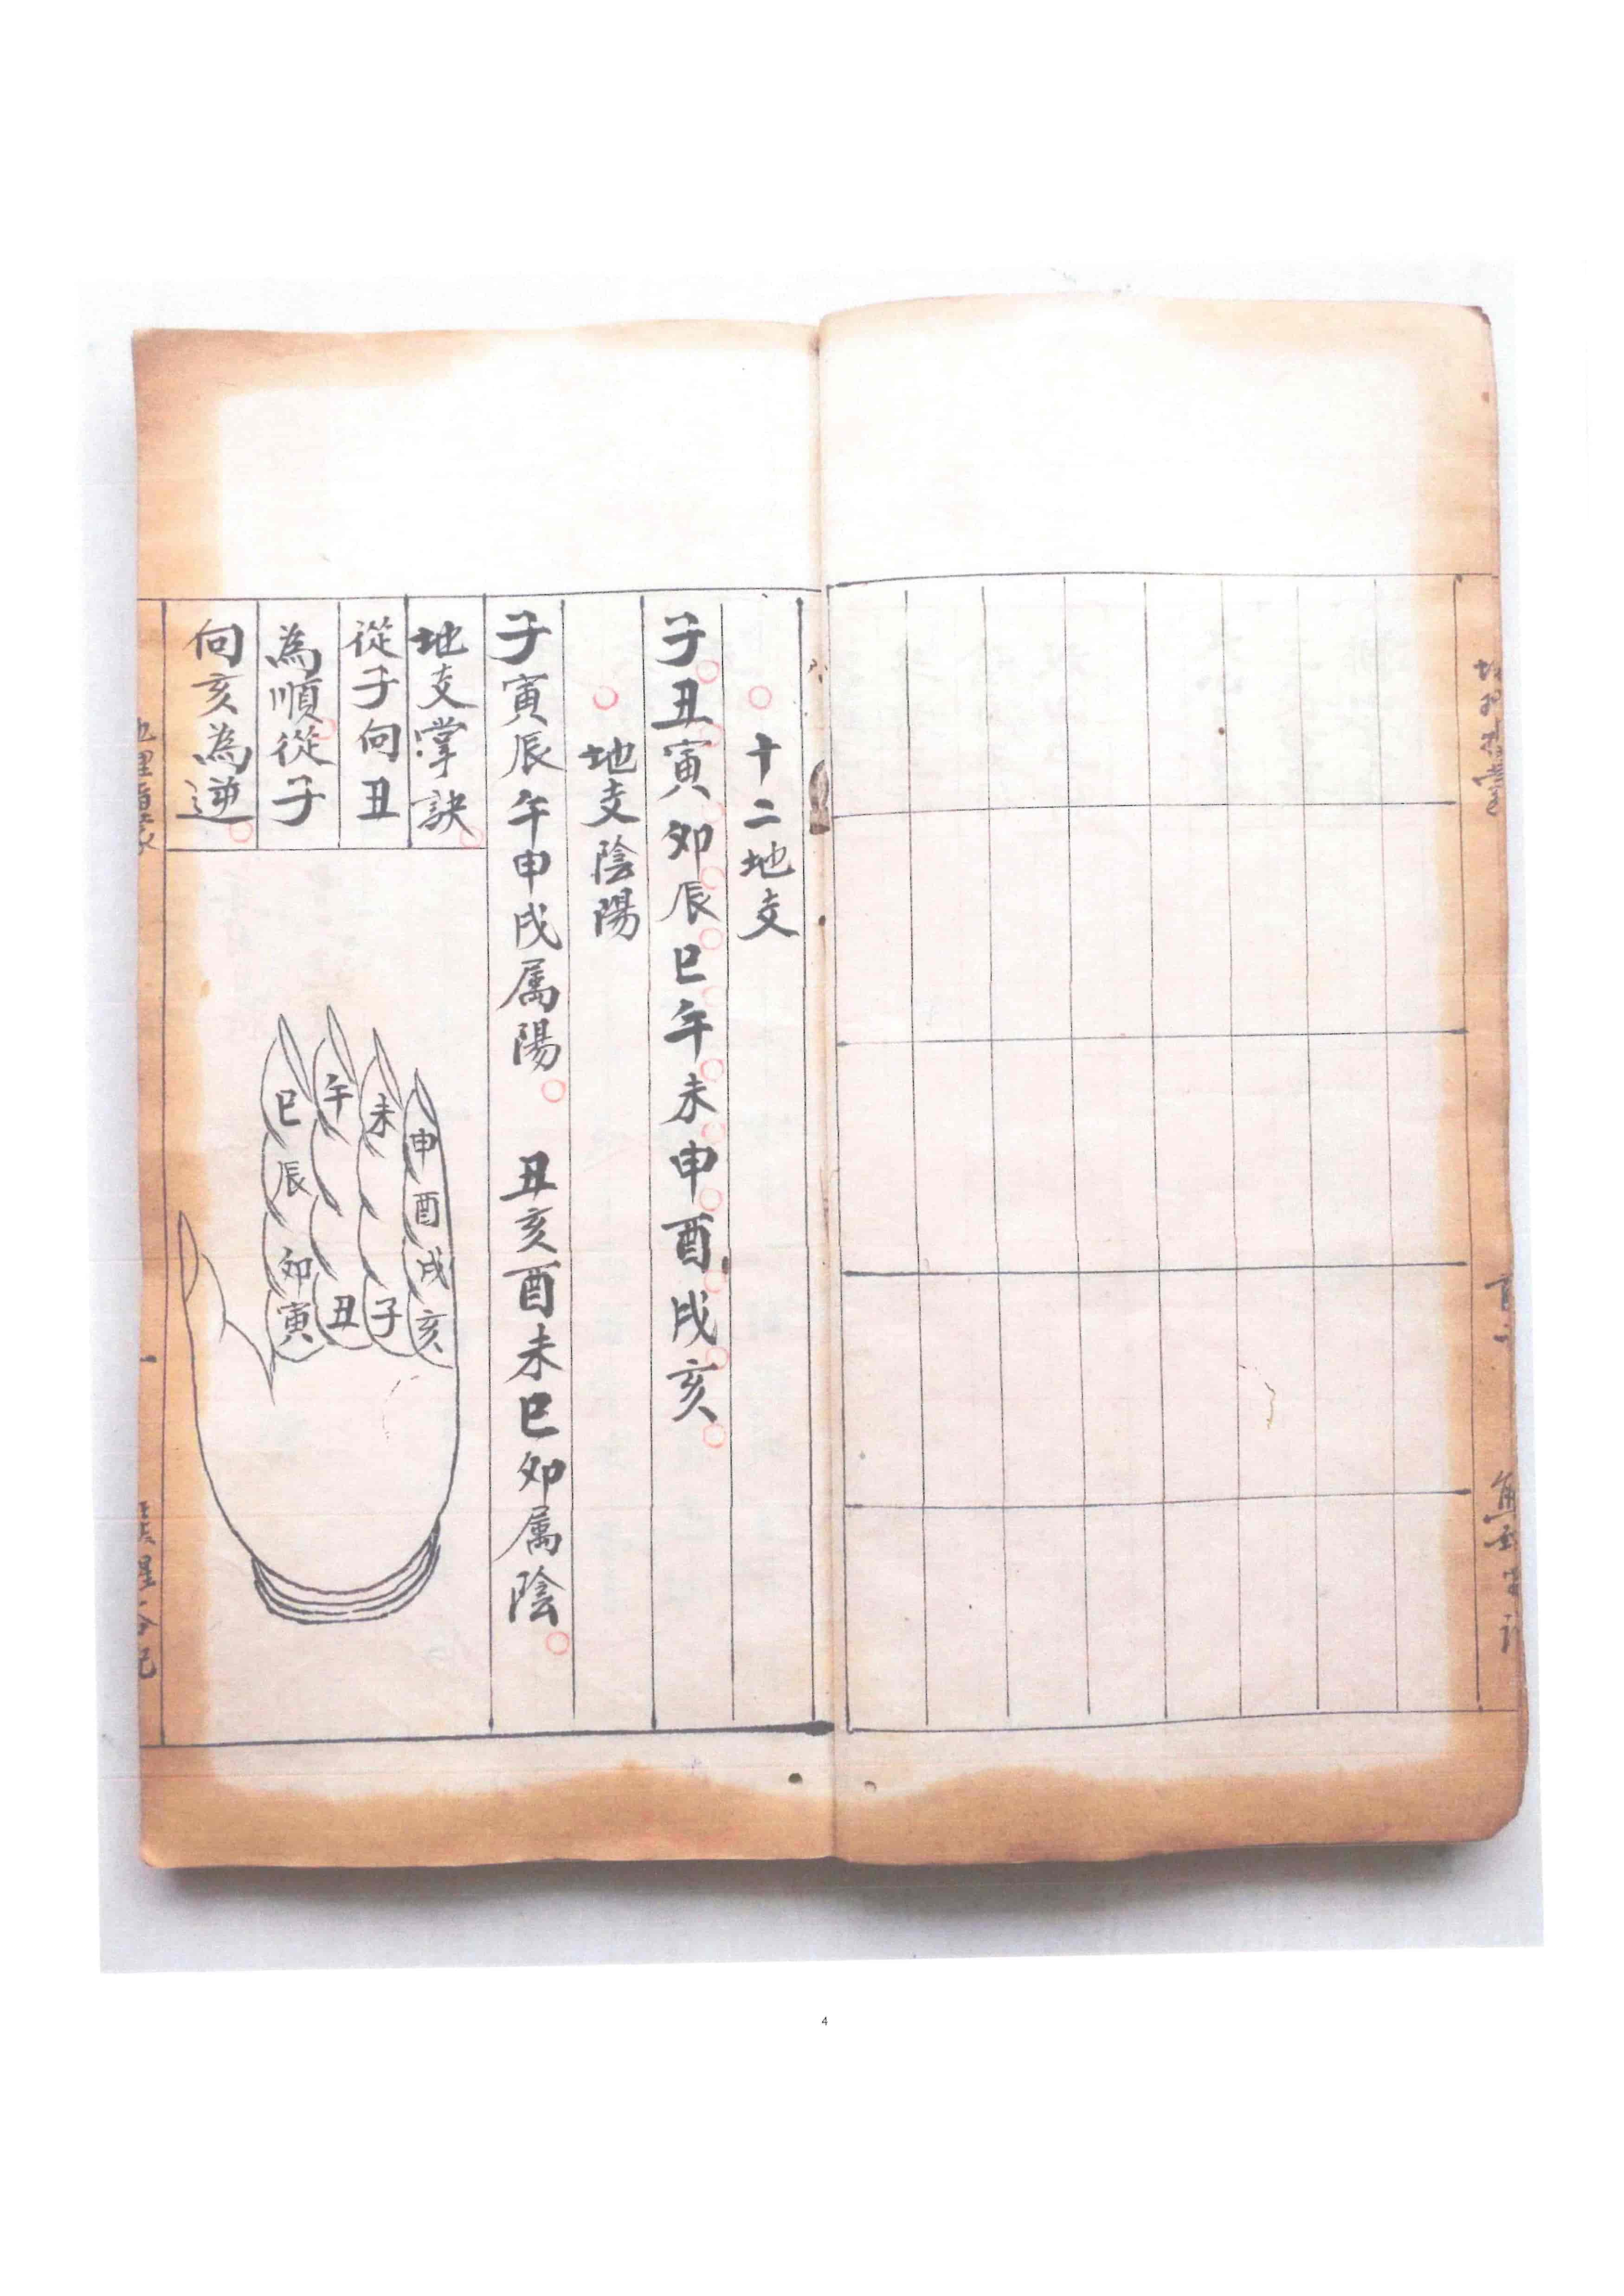 十二地支
子丑寅卯辰巳午未申酉戌亥
地支陰陽
子寅辰午申戌属陽 丑亥酉未巳卯属陰
地支掌訣
從子向丑
為順從子
向亥為逆
巳午未申
辰酉
卯戌
寅丑子亥
4